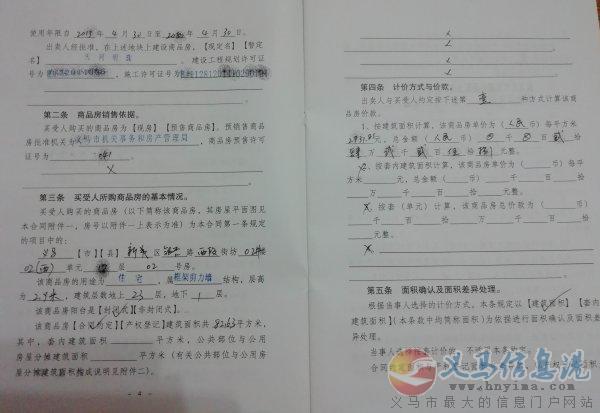 使用年限自2015年4月30日至 年4月30日。
出卖人经批准，在上述地块上建设商品房，【现定名】【暂定
名】天河明珠。建设工程规划许可证
号为 ，施工许可证号为
第二条 商品房销售依据。
买受人购买的商品房为【现房】【预售商品房】。预销售商品
房批准机关为义马市机关事务和房产管理局，商品房预售许可
证号为 041
X
第三条 买受人所购商品房的基本情况。
买受人购买的商品房（以下简称该商品房，其房屋平面图见
本合同附件一，房号以附件一上表示为准）为本合同第一条规定
的项目中的：
义马【市】【县】新义区银杏路西段街坊02幢
02(西)单元 层02号房。
该商品房的用途为住宅，属框架剪力墙结构，层高
为2.9米，建筑层数地上23层，地下1层。
该商品房阳台是【封闭式】【非封闭式】。
该商品房【合同约定】【产权登记】建筑面积共82.63平方米，
其中，套内建筑面积 平方米，公共部位与公用
房屋分摊建筑面积 平方米（有关公共部位与公用房
屋分摊建筑面积构成说明见附件二）。
- 4 -
第四条 计价方式与价款。
出卖人与买受人约定按下述第壹种方式计算该商
品房价款。
1、按建筑面积计算，该商品房单价为（人民币）每平方米
元，总金额（人民币）⊗千⊗百贰拾
肆万贰千贰百 拾 元整。
X、按套内建筑面积计算，该商品房单价为（ 币）每平方
米 元，总金额（ 币） 千 百 拾
万 千 百 拾 元整。
X、按套（单元）计算，该商品房总价款为（ 币）
千 百 拾 万 千 百 拾
元整。
X、
第五条 面积确认及面积差异处理。
根据当事人选择的计价方式，本条规定以【建筑面积】【套内
建筑面积】（本条款中均简称面积）为依据进行面积确认及面积差
异处理。
当事人选择按套计价的，不适用本条约定。
义马信息港
www.hnyima.com
义马市最大的信息门户网站